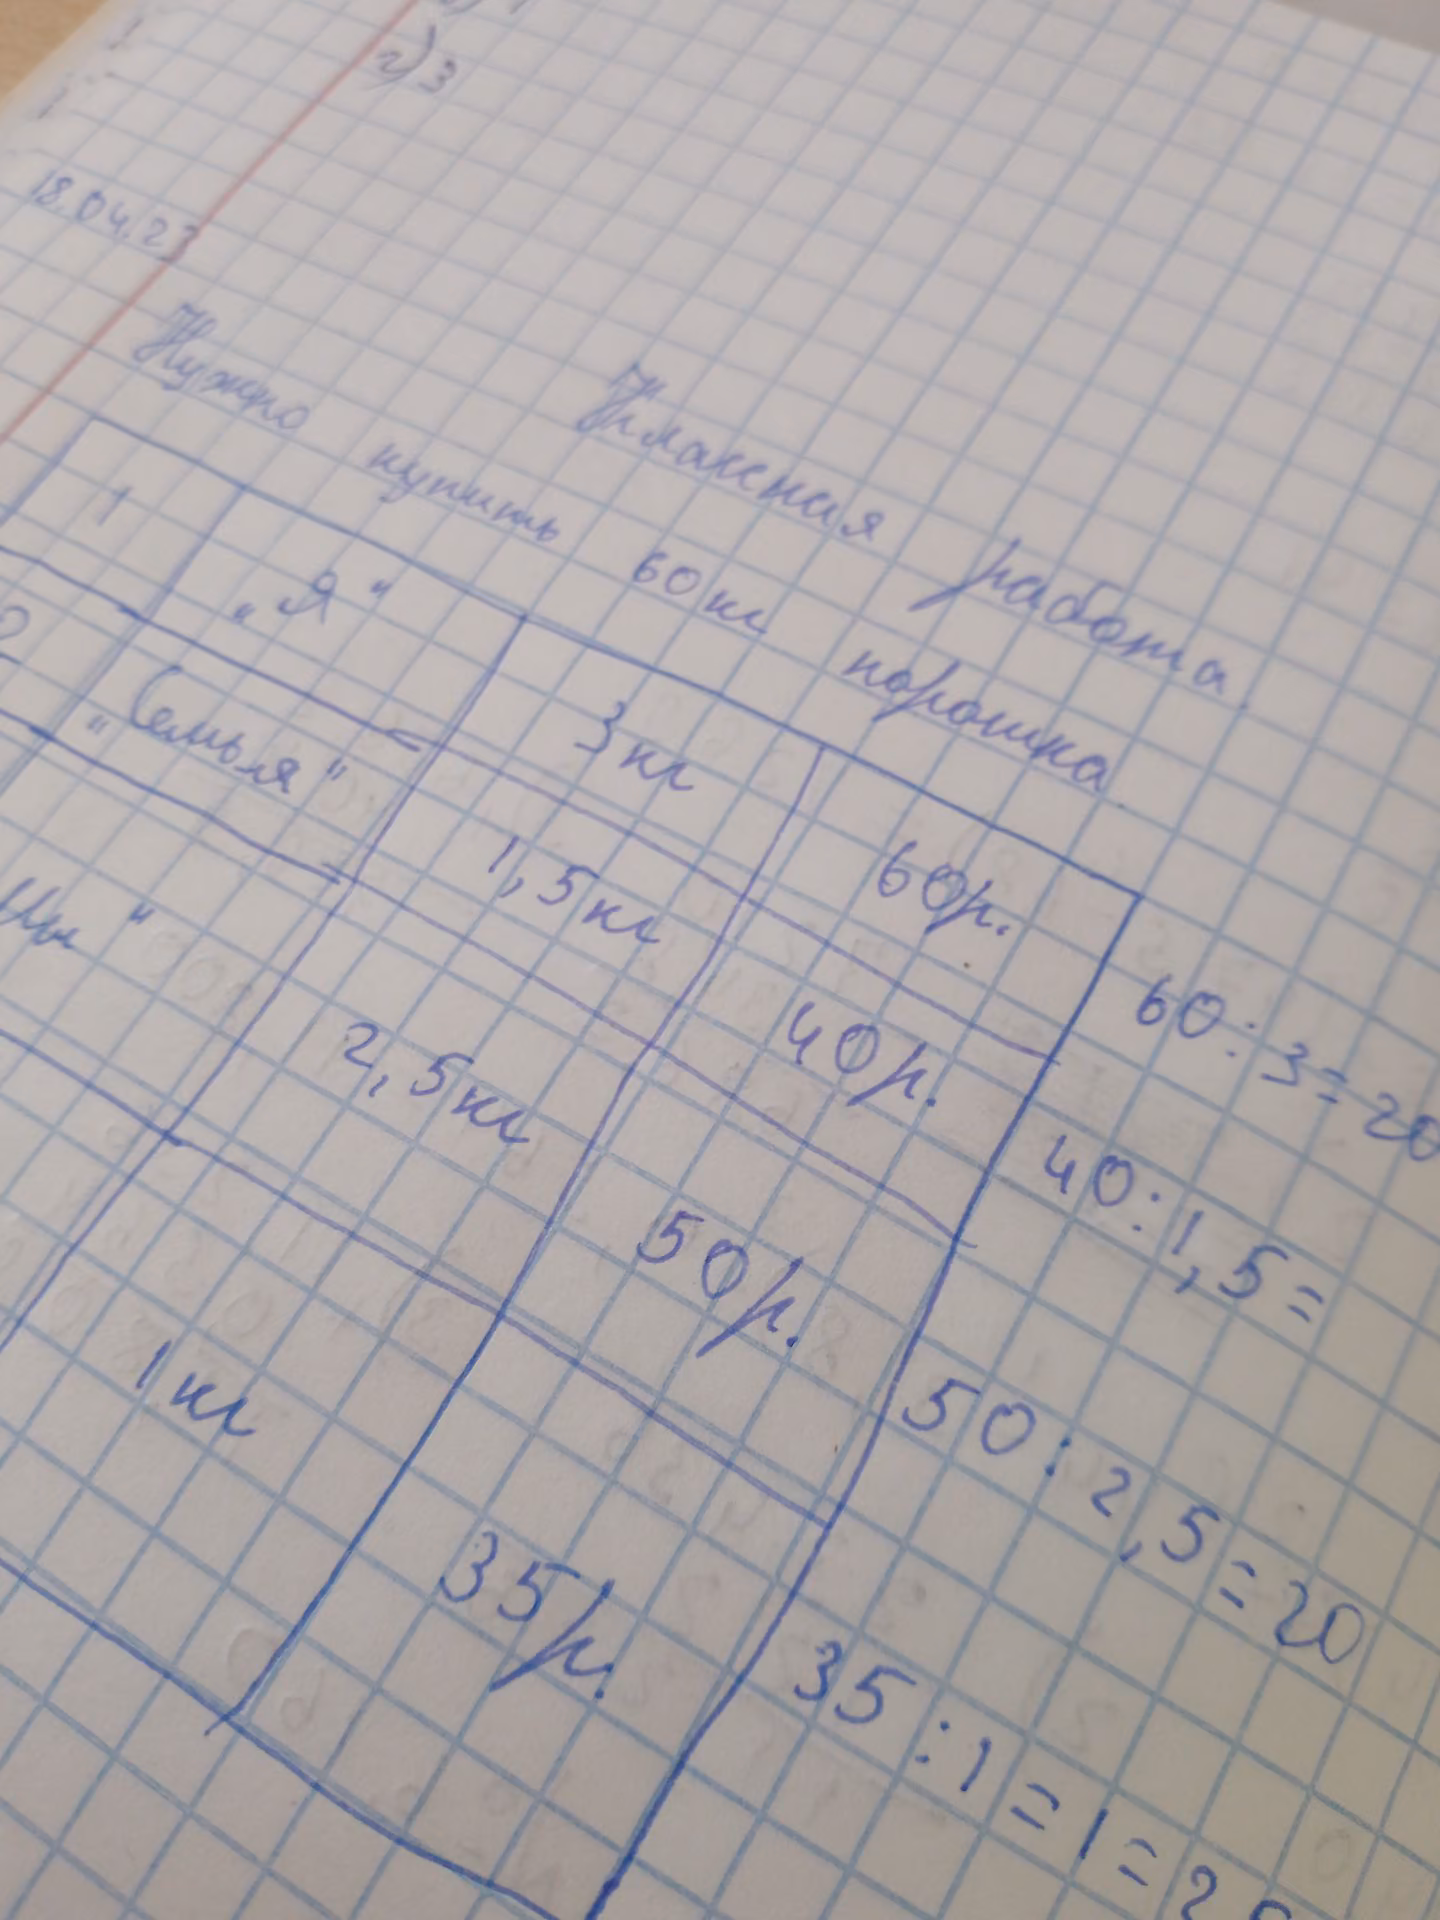 г) 3
18.04.23
Классная работа
Нужно купить 60 кг порошка
1 „Я“ 3 кг 60 р. 60 : 3 = 20
2 „Семья“ 1,5 кг 40 р. 40 : 1,5 =
2,5 кг 50 р. 50 : 2,5 = 20
1 кг 35 р. 35 : 1 = 1 =